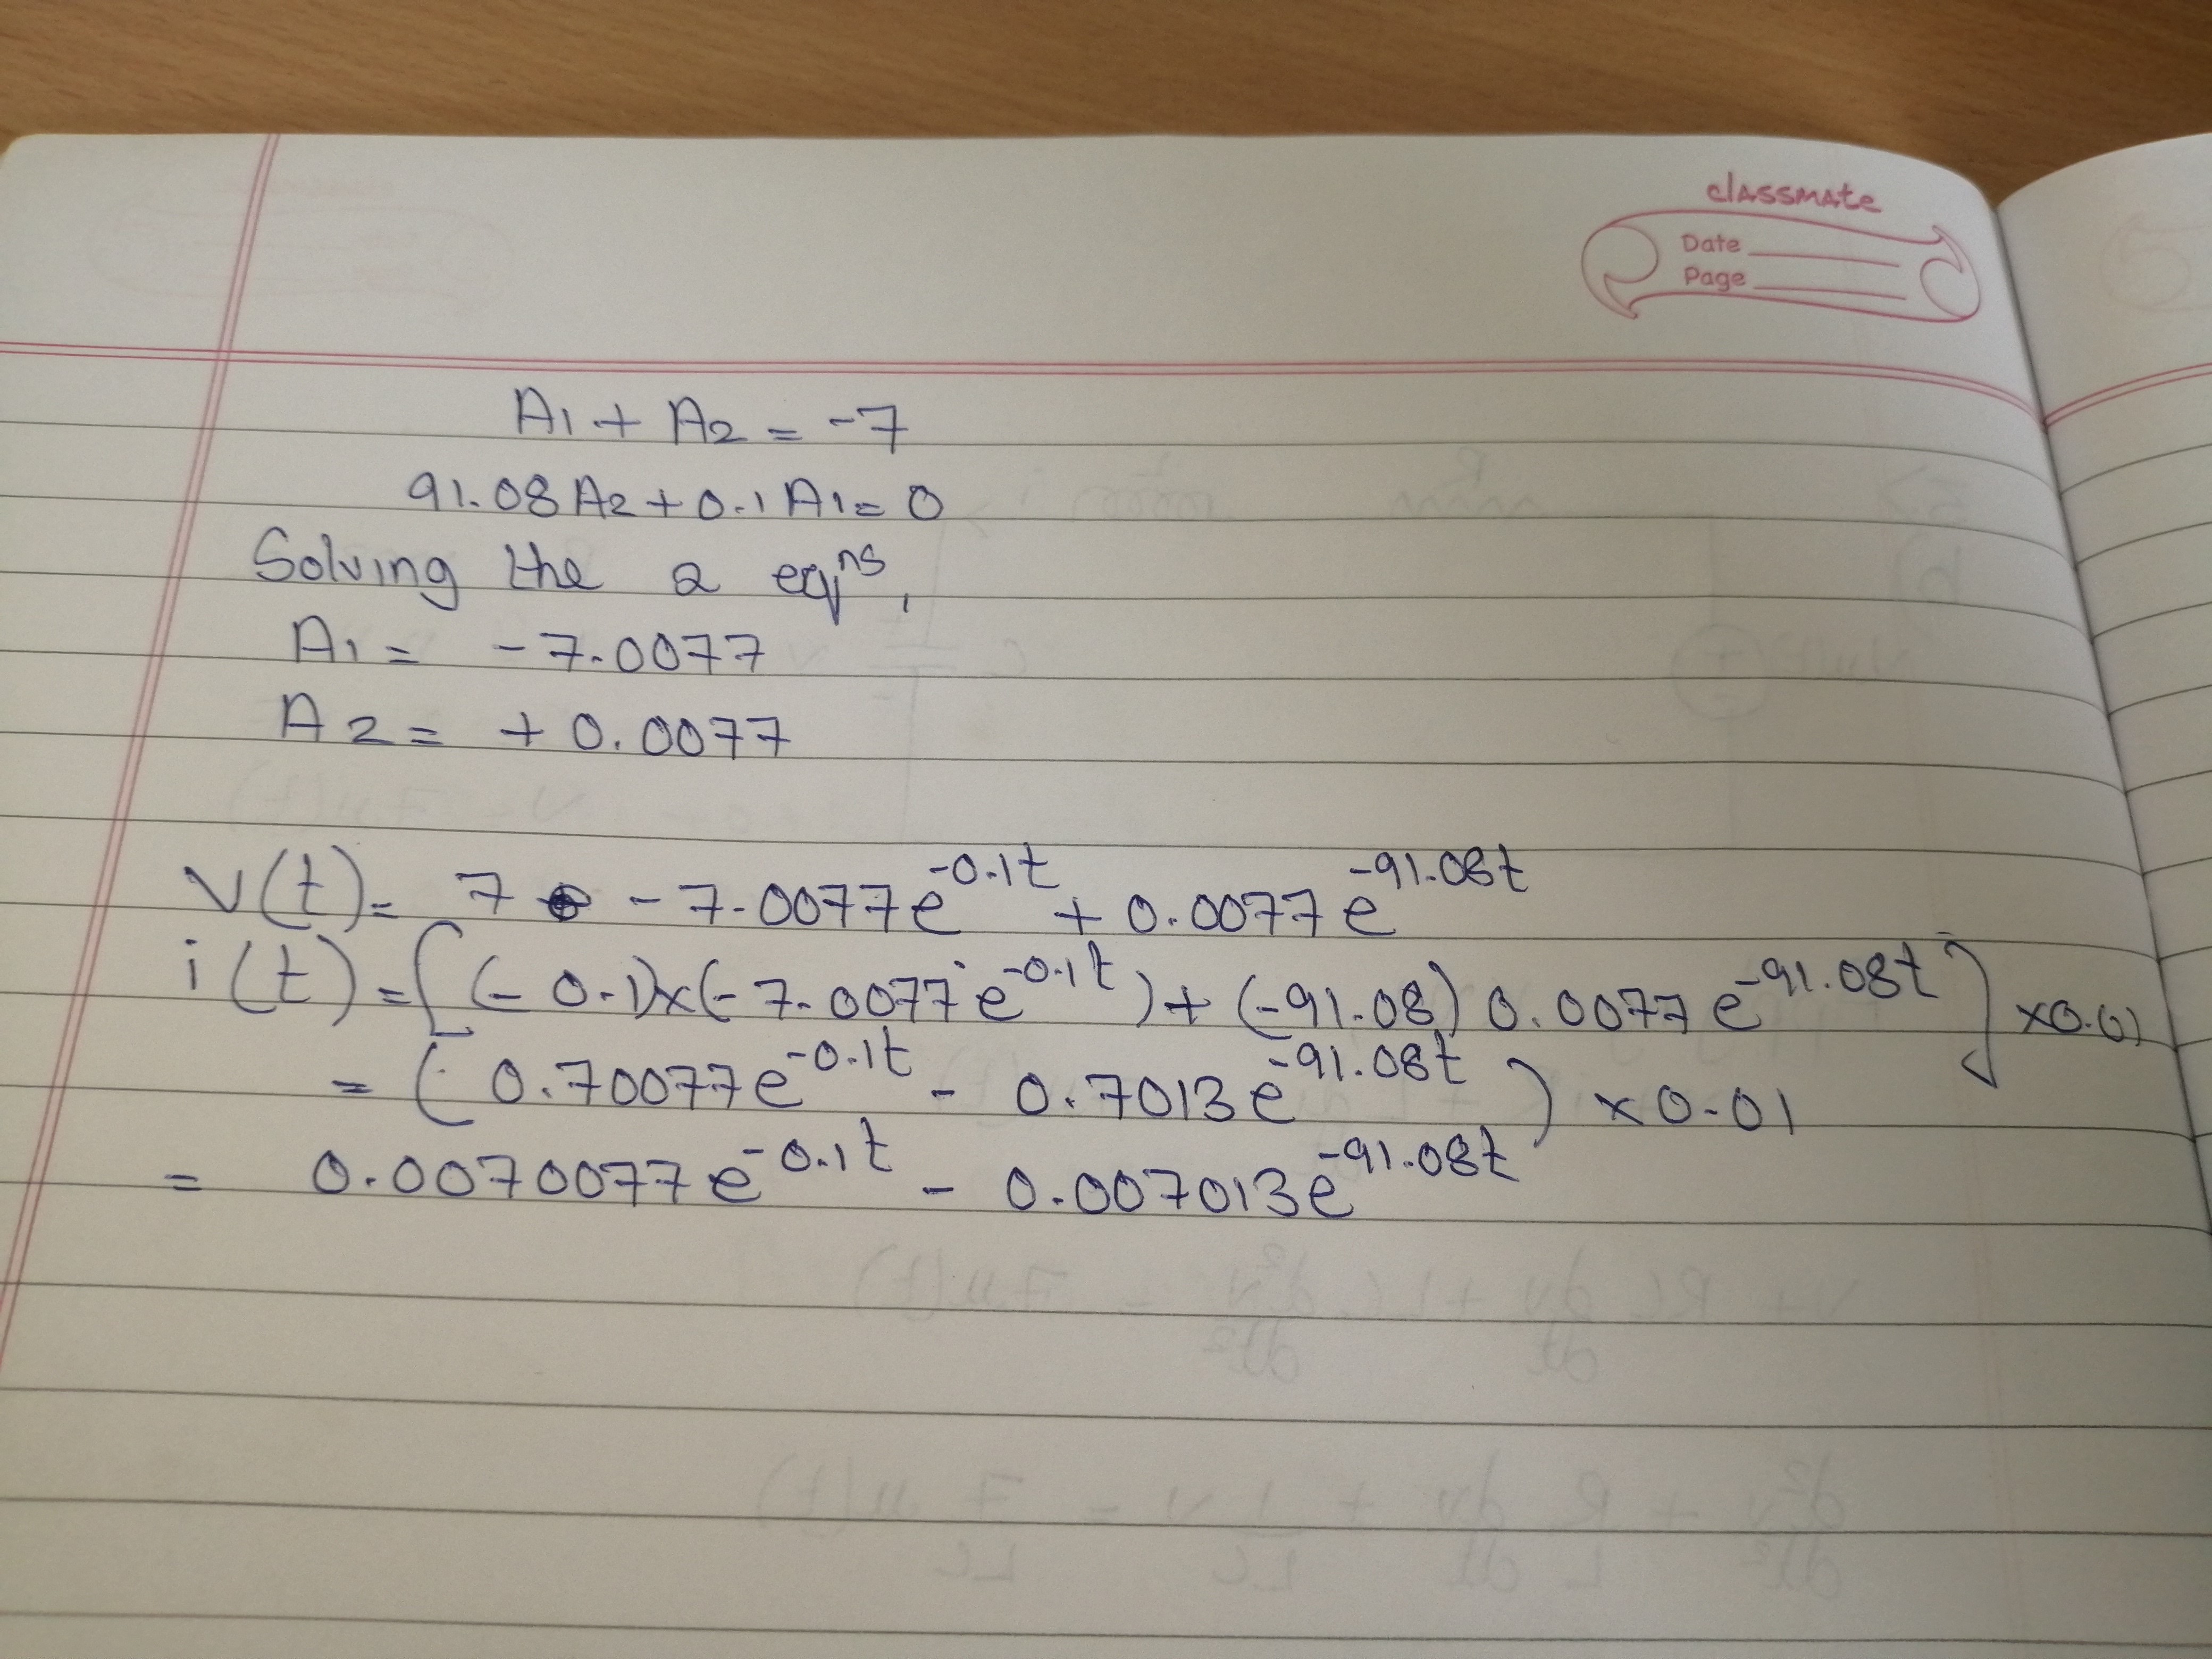 classmate
Date
Page
A1 + A2 = -7
91.08A2 + 0.1A1 = 0
Solving the 2 eqⁿˢ,
A1 = -7.0077
A2 = +0.0077
v(t) = 7 - 7.0077e^-0.1t + 0.0077e^-91.08t
i(t) = [(-0.1)x(-7.0077e^-0.1t) + (-91.08)0.0077e^-91.08t] x0.01
= (0.70077e^-0.1t - 0.7013e^-91.08t) x0.01
= 0.0070077e^-0.1t - 0.007013e^-91.08t